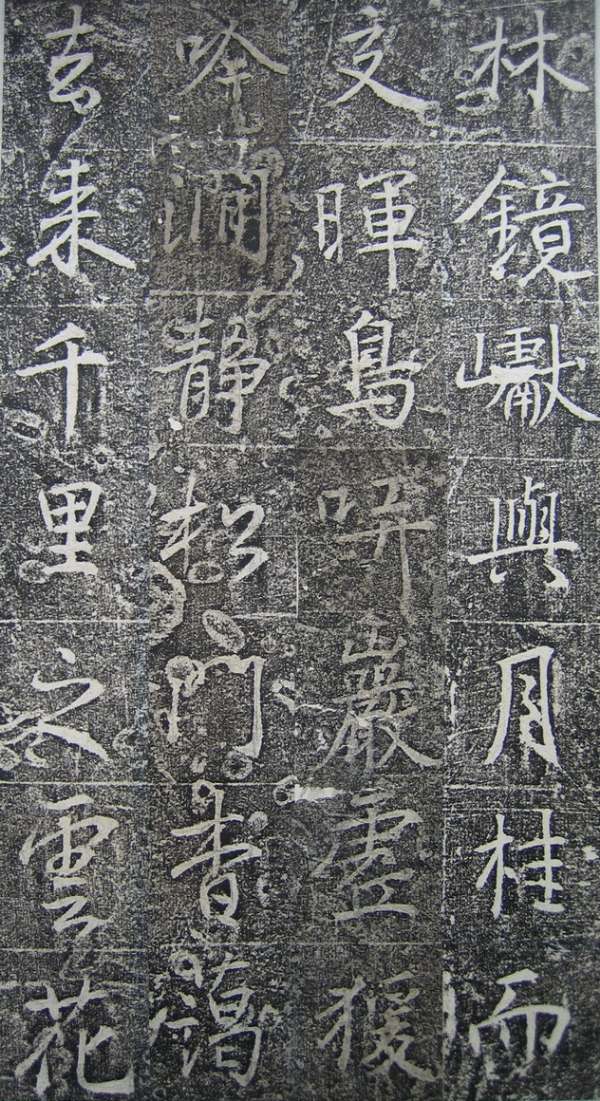 林鏡巘與月桂而
交暉鳥哢巖虛猨
吟澗靜松門香藹
去来千里之雲花